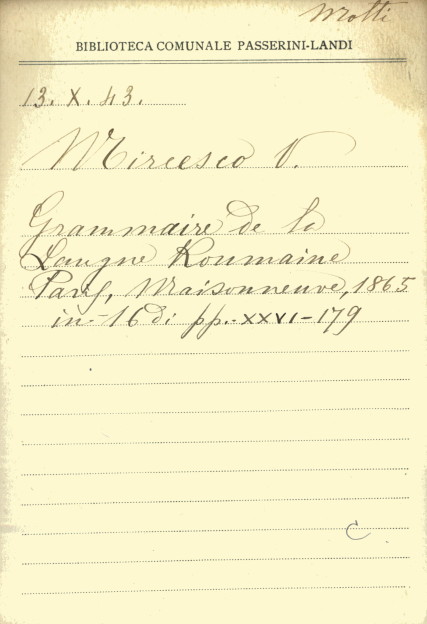 Motti
BIBLIOTECA COMUNALE PASSERINI-LANDI
13. X. 43.
Mircesco V.
Grammaire de la
Langue Roumaine
Paris, Maisonneuve, 1865
in-16 di pp.-XXVI-179
C